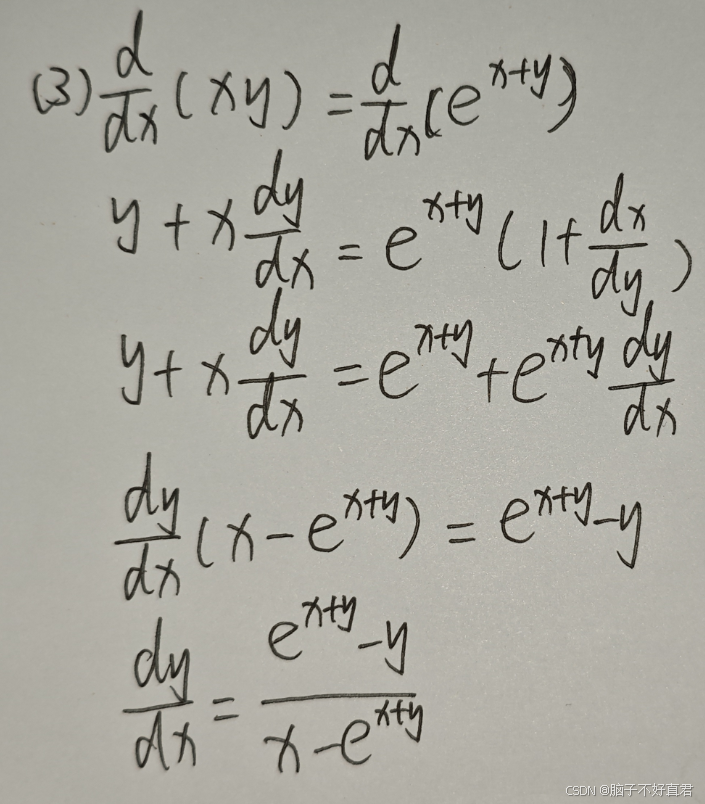 (3) d/dx (xy) = d/dx (e^{x+y})
y + x dy/dx = e^{x+y} (1 + dx/dy)
y + x dy/dx = e^{x+y} + e^{x+y} dy/dx
dy/dx (x - e^{x+y}) = e^{x+y} - y
dy/dx = (e^{x+y} - y)/(x - e^{x+y})
CSDN @脑子不好直君